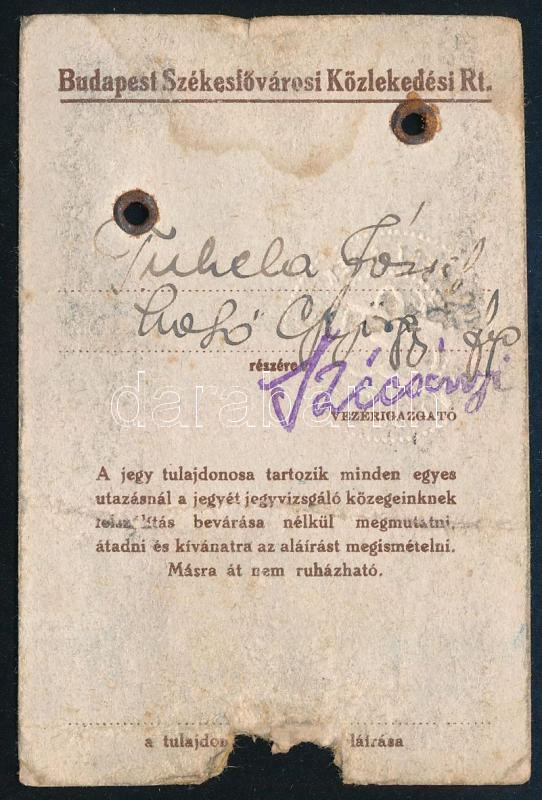 Budapest Székesfővárosi Közlekedési Rt.
József
részére
VEZÉRIGAZGATÓ
A jegy tulajdonosa tartozik minden egyes
utazásnál a jegyét jegyvizsgáló közegeinknek
felszólítás bevárása nélkül megmutatni,
átadni és kívánatra az aláírást megismételni.
Másra át nem ruházható.
a tulajdon láírása